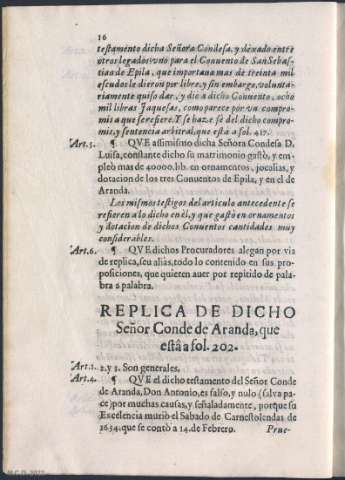 16
testamento dicha Señora Condesa, y dexado entre
otros legados vno para el Conuento de San Sebas-
tian de Epila, que importaua mas de treinta mil
escudos le dieron por libre, y sin embargo, volunta-
riamente quiso dar, y dio a dicho Conuento, ocho
mil libras Jaquesas, como parece por vn compro-
mis a que se refiere. Y se haze fe del dicho compro-
mis, y sentencia arbitral, que està a fol. 417.
Art. 5. ¶ QVE assimismo dicha Señora Condesa D.
Luisa, constante dicho su matrimonio gastò, y em-
pleò mas de 40000. lib. en ornamentos, jocalias, y
dotacion de los tres Conuentos de Epila, y en el de
Aranda.
Los mismos testigos del articulo antecedente se
refieren a lo dicho en èl, y que gastò en ornamentos
y dotacion de dichos Conuentos cantidades muy
considerables.
Art. 6. ¶ QVE dichos Procuradores alegan por via
de replica, seu aliàs, todo lo contenido en sus pro-
posiciones, que quieren auer por repitido de pala-
bra a palabra.
REPLICA DE DICHO
Señor Conde de Aranda, que
està a fol. 202.
Art. 1. 2. y 3. Son generales.
Art. 4. ¶ QVE el dicho testamento del Señor Conde
de Aranda, Don Antonio, es falso, y nulo (salua pa-
ce) por muchas causas, y señaladamente, porque su
Excelencia muriò el Sabado de Carnestolendas de
1654. que se contò a 14. de Febrero. Prue-